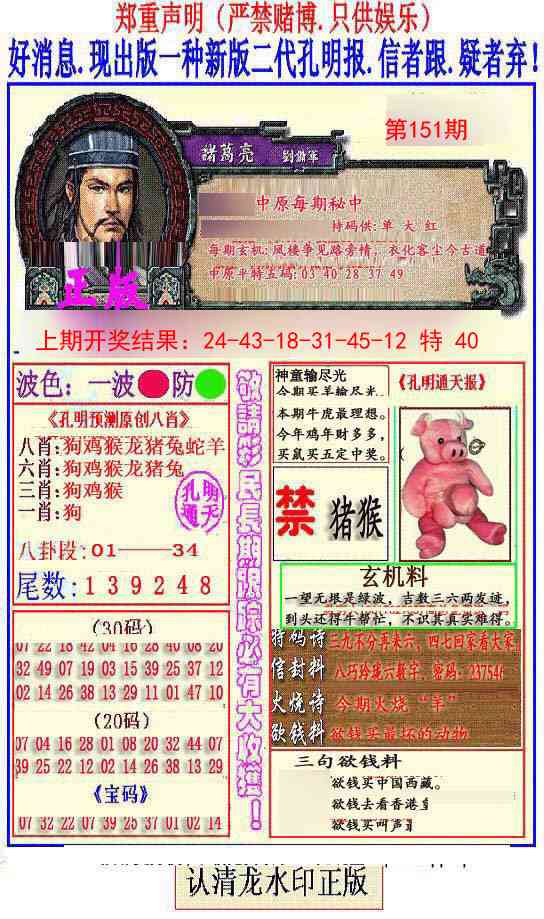 郑重声明（严禁赌博.只供娱乐）
好消息.现出版一种新版二代孔明报.信者跟.疑者弃！
第151期
諸葛亮
中原每期秘中
特码供:单 大 红
每期玄机:凤楼争见路旁情，衣化客尘今古道
中原平特五码:03 40 28 37 49
正版
上期开奖结果：24-43-18-31-45-12 特 40
波色：一波 防
《孔明预测原创八肖》
八肖:狗鸡猴龙猪兔蛇羊
六肖:狗鸡猴龙猪兔
三肖:狗鸡猴
一肖:狗
孔明
通天
八卦段:01——34
尾数:139248
(30码)
07 22 18 42 04 15 28 40 08 20
32 49 07 19 03 15 39 25 37 12
02 14 26 38 13 29 11 01 47 10
(20码)
07 04 16 28 01 08 20 32 44 07
39 25 22 12 02 14 26 38 13 29
《宝码》
07 32 22 07 39 25 37 01 02 14
敬請彩民長期跟踪必有大收獲！
神童输尽光
今期买羊输尽光
本期牛虎最理想。
今年鸡年财多多，
买鼠买五定中奖。
《孔明通天报》
禁 猪猴
玄机料
一望无垠是绿波，吉数三六两发迹，
到头还得牛帮忙，不识其真实难得。
特码诗 三九不分再来六，四七回家看大家
信封料 八巧玲珑六数字，密码：237546
火烧诗 今期火烧“羊”
欲钱料 欲钱买最坏的动物
三句欲钱料
欲钱买中国西藏。
欲钱去看香港
欲钱买叫声
认清龙水印正版